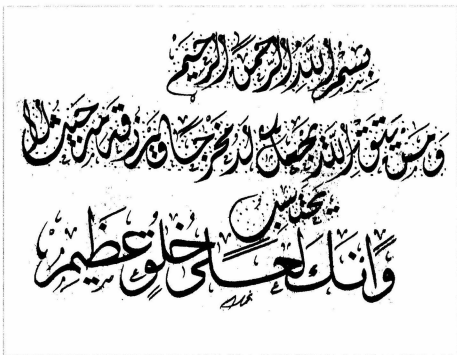 بسم الله الرحمن الرحيم
ومن يتق الله يجعل له مخرجا ويرزقه من حيث لا
يحتسب
وإنك لعلى خلق عظيم